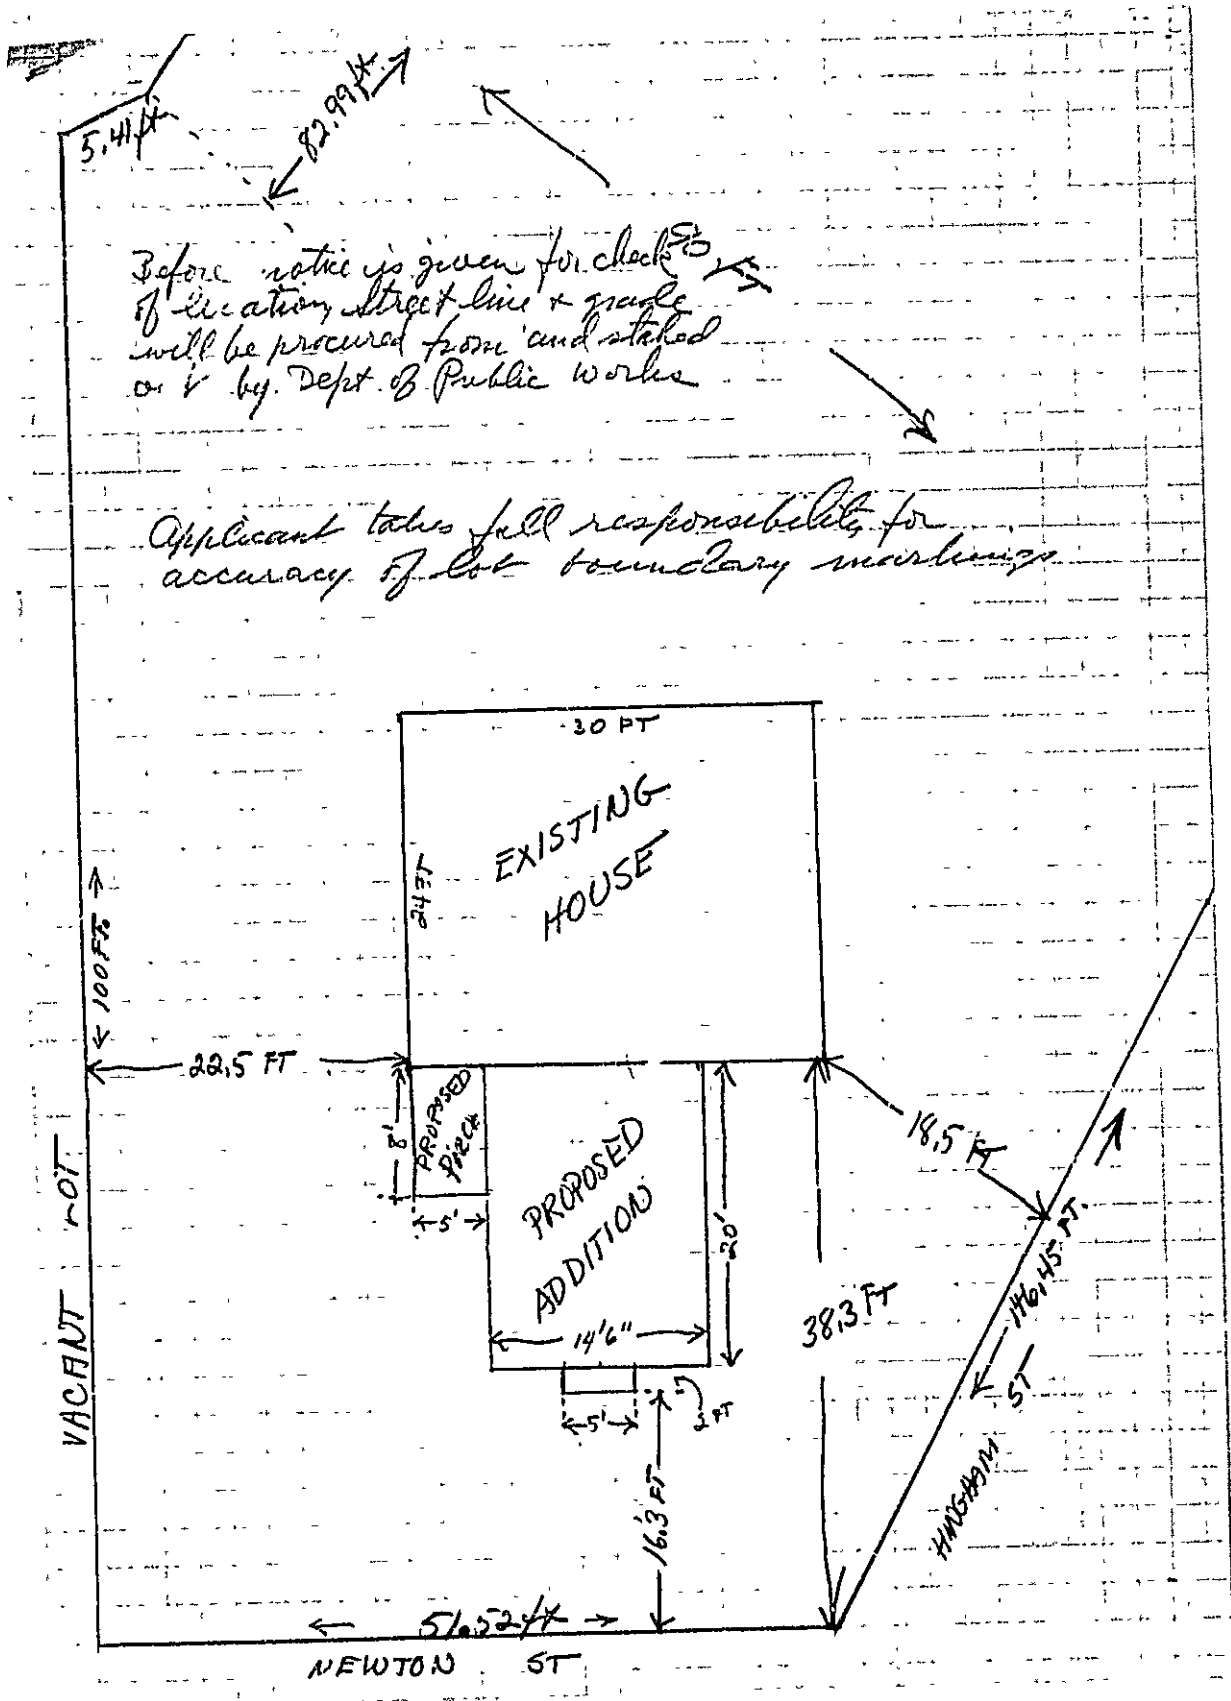 5.41 ft
82.99 ft
Before notice is given for check
of location, street line & grade
will be procured from and staked
by Dept of Public Works
Applicant takes full responsibility for
accuracy of lot boundary markings
30 FT
EXISTING
HOUSE
24 FT
← 100 FT. →
22.5 FT
PROPOSED
PORCH
8'
5'
PROPOSED
ADDITION
20'
14'6"
5'
2 FT
18.5 FT
38.3 FT
146.45 FT.
HINGHAM ST
16.3 FT
VACANT LOT
← 51.52 ft →
NEWTON ST